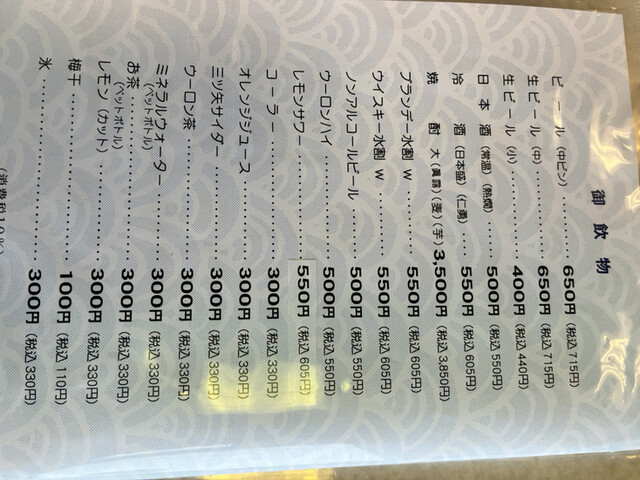 御飲物
ビール（中ビン）……… 650円（税込 715円）
生ビール（中）……… 650円（税込 715円）
生ビール（小）……… 400円（税込 440円）
日本酒（常温）（熱燗）……… 500円（税込 550円）
冷酒（日本盛）（仁勇）……… 550円（税込 605円）
焼酎 大（眞露）（麦）（芋） 3,500円（税込 3,850円）
ブランデー水割 W……… 550円（税込 605円）
ウイスキー水割 W……… 550円（税込 605円）
ノンアルコールビール……… 500円（税込 550円）
ウーロンハイ……… 500円（税込 550円）
レモンサワー……… 550円（税込 605円）
コーラー……… 300円（税込 330円）
オレンジジュース……… 300円（税込 330円）
三ツ矢サイダー……… 300円（税込 330円）
ウーロン茶……… 300円（税込 330円）
ミネラルウォーター……… 300円（税込 330円）
（ペットボトル）
お茶……… 300円（税込 330円）
（ペットボトル）
レモン（カット）……… 300円（税込 330円）
梅干……… 100円（税込 110円）
氷……… 300円（税込 330円）
（消費税10%